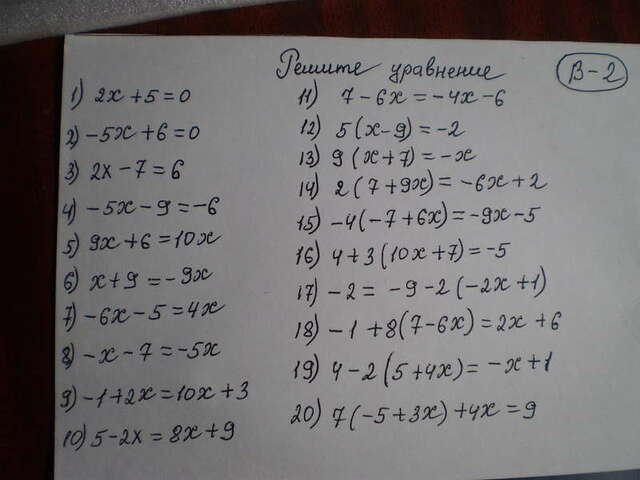 Решите уравнение
В-2
1) 2x+5=0
2) -5x+6=0
3) 2x-7=6
4) -5x-9=-6
5) 9x+6=10x
6) x+9=-9x
7) -6x-5=4x
8) -x-7=-5x
9) -1+2x=10x+3
10) 5-2x=8x+9
11) 7-6x=-4x-6
12) 5(x-9)=-2
13) 9(x+7)=-x
14) 2(7+9x)=-6x+2
15) -4(-7+6x)=-9x-5
16) 4+3(10x+7)=-5
17) -2=-9-2(-2x+1)
18) -1+8(7-6x)=2x+6
19) 4-2(5+4x)=-x+1
20) 7(-5+3x)+4x=9